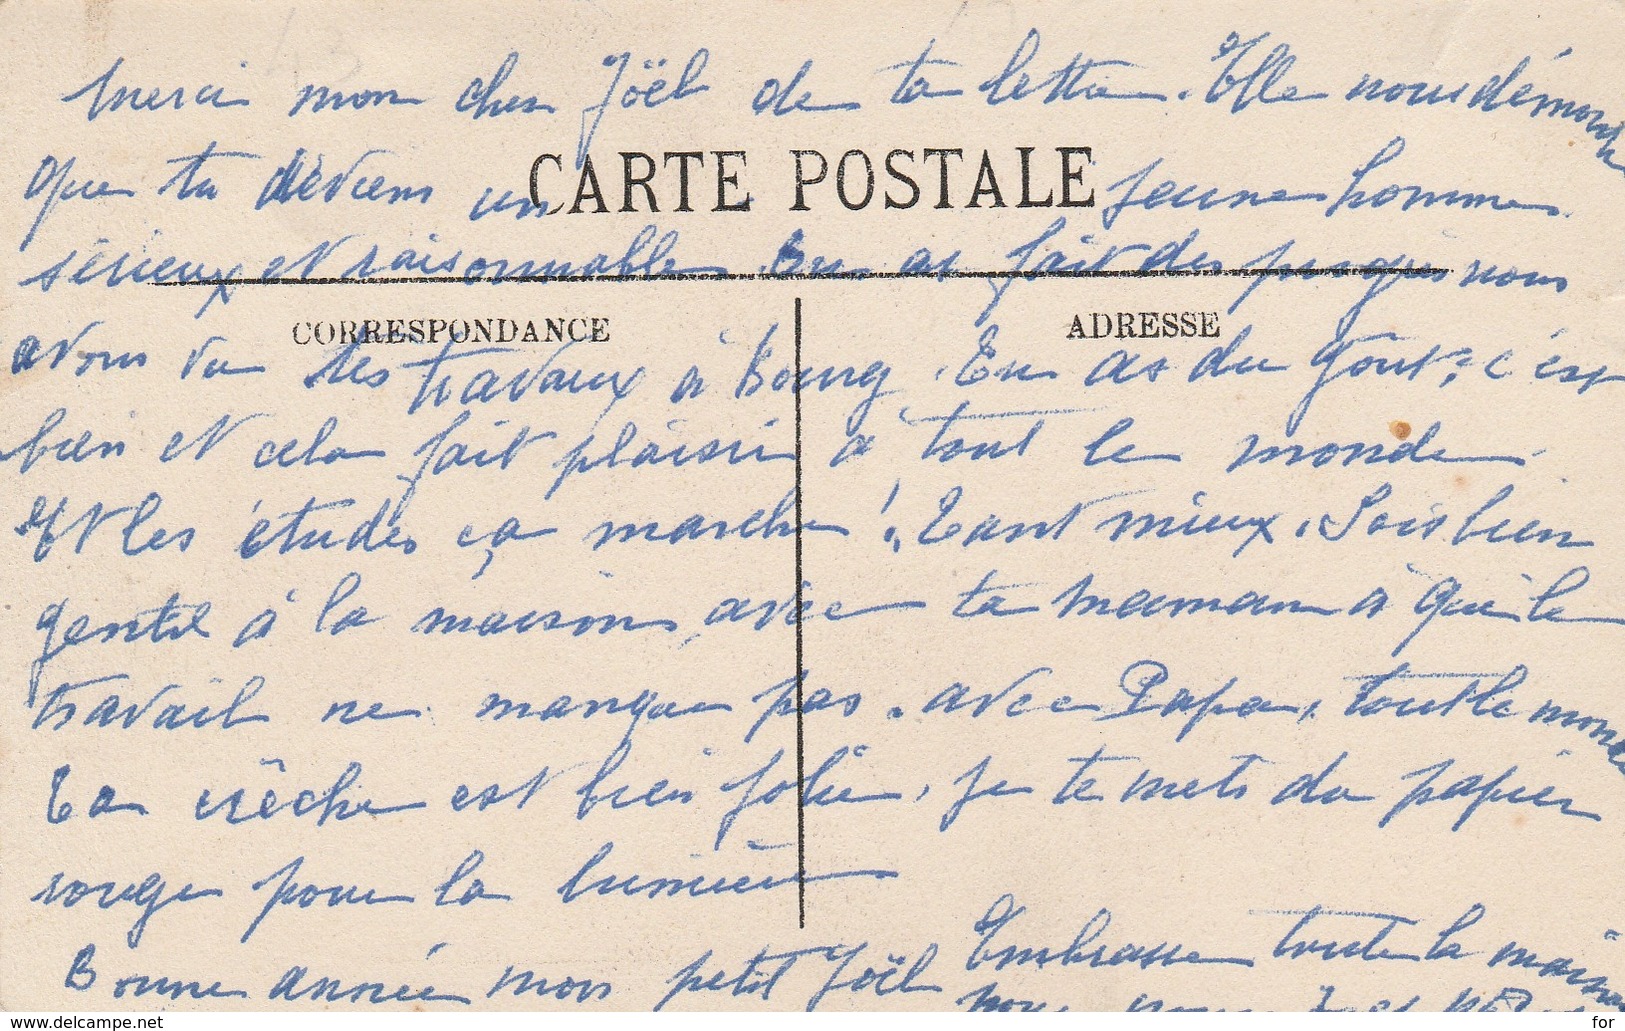 Merci mon cher Joël de ta lettre. Elle nous démontre
CARTE POSTALE
que tu deviens un jeune homme
sérieux et raisonnable. Tu as fait des progrès nous
CORRESPONDANCE
ADRESSE
avons vu tes travaux à Bourg. Tu as du goût, c'est
bien et cela fait plaisir à tout le monde.
Et les études ça marche! Tant mieux. Sois bien
gentil à la maison, avec ta maman à qui le
travail ne manque pas. avec Papa, tout le monde
Ta crêche est bien jolie, je te mets du papier
rouge pour la lumière
Bonne année mon petit Joël
Embrasse toute la maison
pour nous
delcampe.net
for